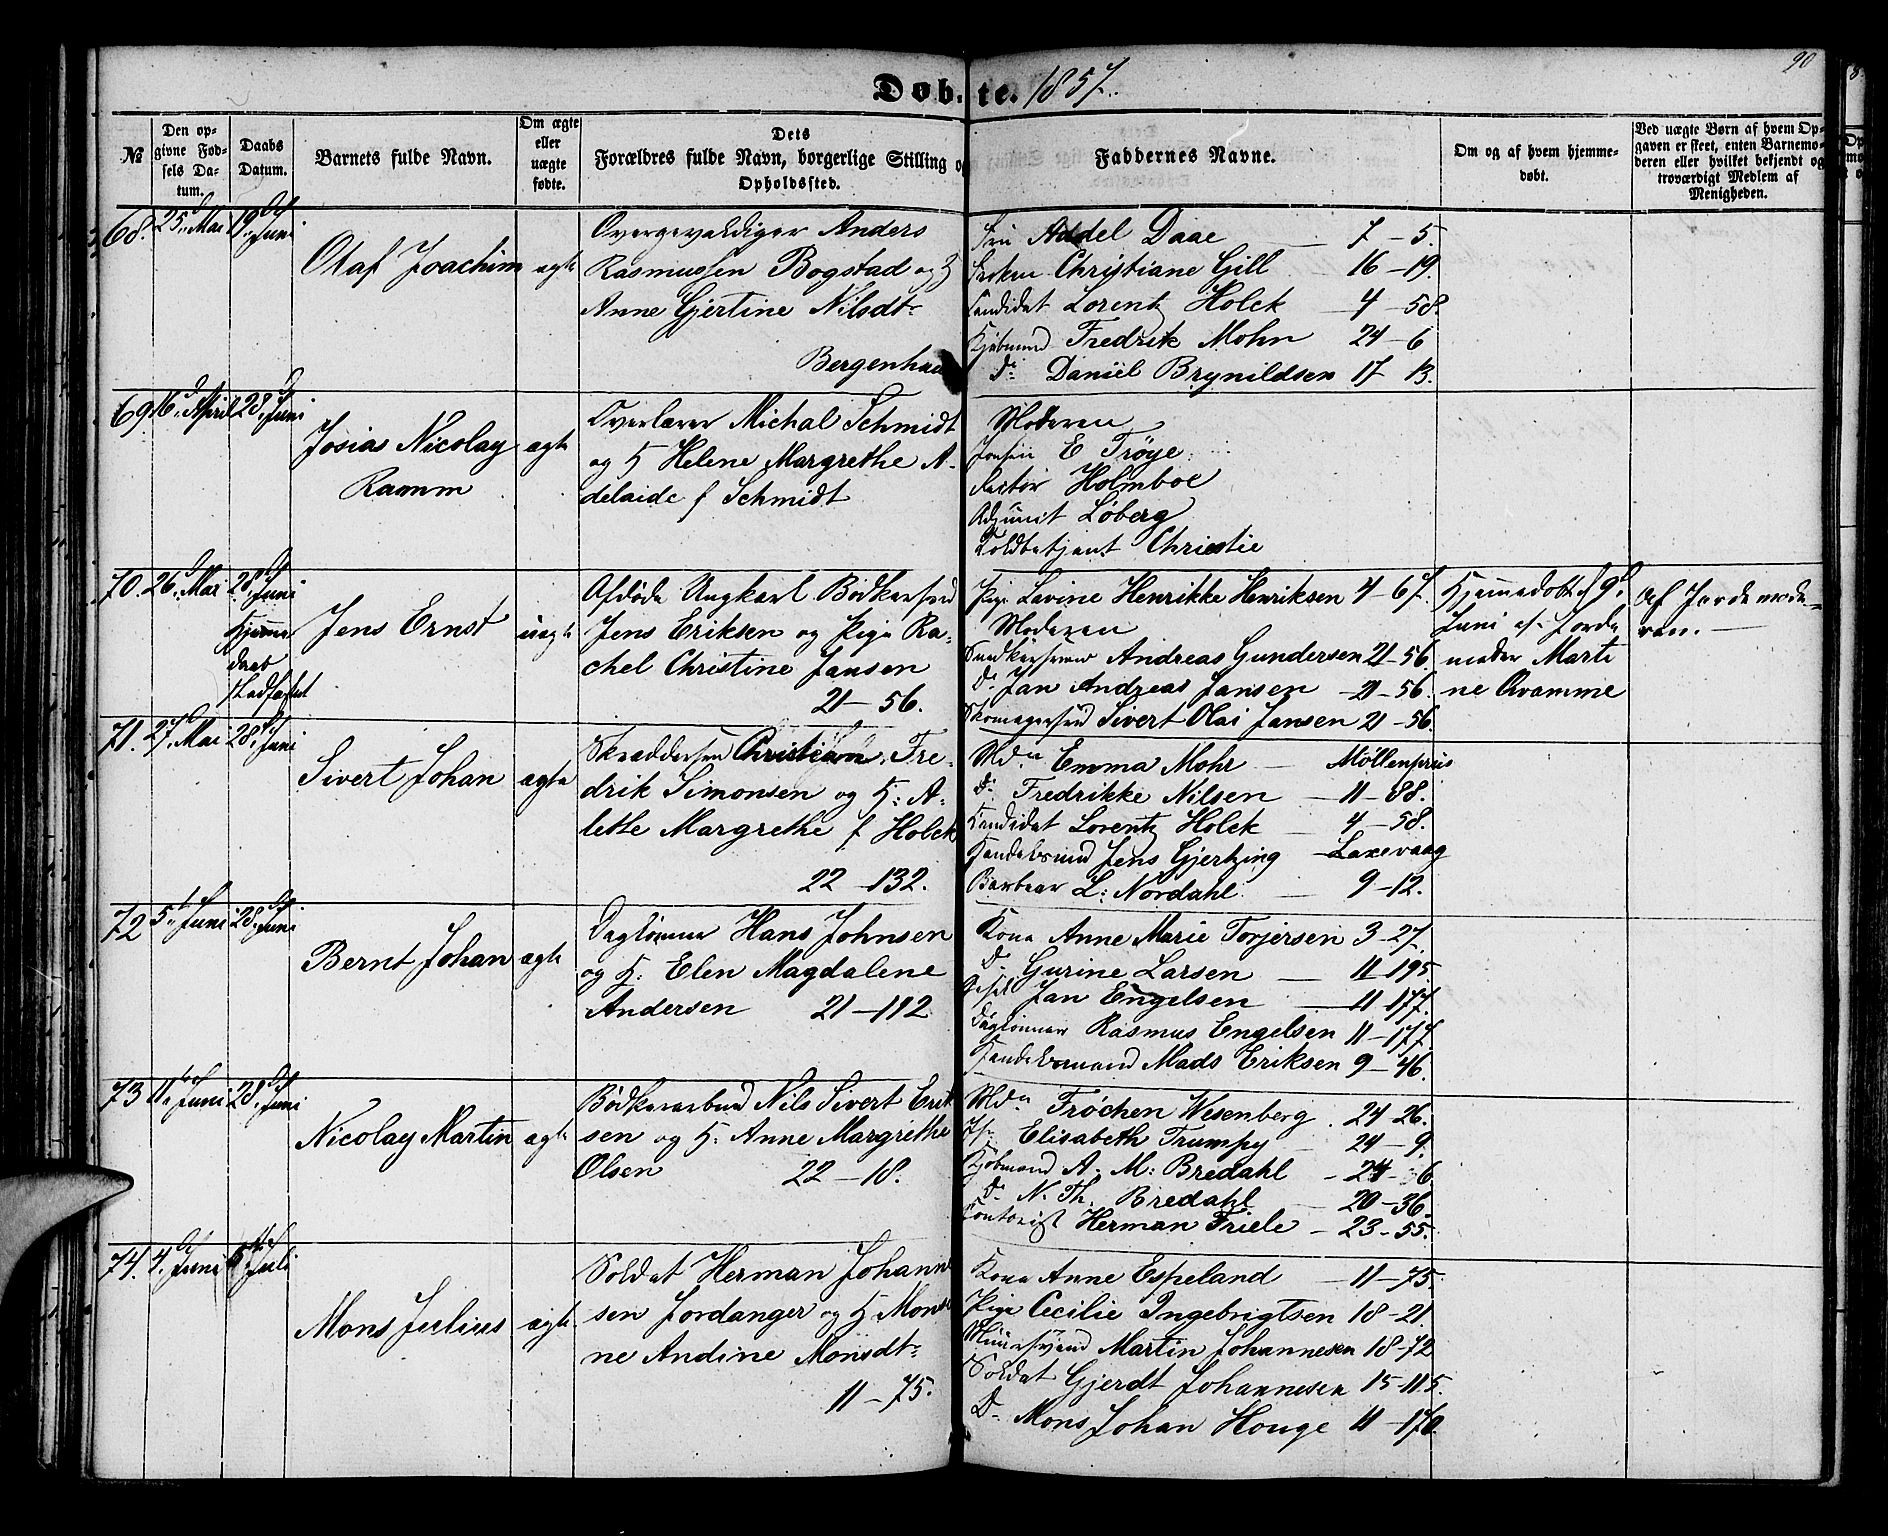 90
Døbte. 1857.
№
Den opgivne Fødsels Datum.
Daabs Datum.
Barnets fulde Navn.
Om ægte eller uægte fødte.
Dets Forældres fulde Navn, borgerlige Stilling og Opholdssted.
Faddernes Navne.
Om og af hvem hjemmedøbt.
Ved uægte Børn af hvem Opgaven er skeet, enten Barnemoderen eller hvilket bekjendt og troværdigt Medlem af Menigheden.
68. 25. Mai 19. Juni
Olaf Joachim ægte
Overgevaldiger Anders
Rasmussen Bogstad og H
Anne Gjertine Nilsdtr
Bergenhuus
Fru Addel Daae 7-5.
Frøken Christiane Gill 16-19.
Candidat Lorentz Holck 4-58.
Kjøbmand Fredrik Mohn 24-6
Do Daniel Brynildsen 17 13.
69 16. April 28. Juni
Josias Nicolay ægte
Ramm
Overlærer Michal Schmidt
og H Helene Margrethe A-
delaide f Schmidt
Moderen
Jomfru E Trøye
Rector Holmboe
Adjunct Løberg
Toldbetjent Christie
70. 26. Mai 28. Juni
Hjemme
daab
stadfæstet
Jens Ernst uægte
Afdøde Ungkarl Bødkersvend
Jens Eriksen og Pige Ra-
chel Christine Jansen
21-56.
Pige Lavine Henrikke Henriksen 4-67.
Moderen
Snedkersvend Andreas Gundersen 21-56.
Do Jan Andreas Jansen 21-56.
Skomagersvend Sivert Olai Jansen 21-56.
Hjemmedøbt d 9d
Juni af Jorde
moder Marti
ne Qvamme
Af Jordemode-
ren.
71. 27. Mai 28. Juni
Sivert Johan ægte
Skræddersvend Christian Fre-
drik Simonsen og H: A-
lette Margrethe f Holck
22-132.
Mdm Emma Mohr Møllenpriis
Do Fredrikke Nilsen 11-88.
Kandidat Lorentz Holck 4-58.
Handelsmand Jens Gjertzing Laxevaag
Barbeer L: Nordahl 9-12.
72 5. Juni 28. Juni
Bernt Johan ægte
Daglønner Hans Johnsen
og H: Elen Magdalene
Andersen 21-112
Kone Anne Marie Torjersen 3-27.
Do Gurine Larsen 11-195
Jan Engelsen 11-177.
Daglønner Rasmus Engelsen 11-177.
Handelsmand Mads Eriksen 9-46.
73 11. Juni 28. Juni
Nicolay Martin ægte
Bødkersvend Nils Sivert Erik
sen og H: Anne Margrethe
Olsen 22-18.
Mdm Trochen Wesenberg 24-26.
Jfr Elisabeth Trumpy 24-9.
Kjøbmand A. M: Bredahl 24-36
Do N. Th. Bredahl 20-36.
Contorist Herman Friele 23-55.
74. 4. Juni 5. Juli
Mons Julius ægte
Soldat Herman Johanne
sen Jordanger og H Monsi
ne Andine Monsdtr
11-75.
Kone Anne Espeland 11-75.
Pige Cecilie Ingebrigtsen 18-21.
Muursvend Martin Johannesen 18-72
Soldat Gjerdt Johannesen 15-115.
Do Mons Johan Houge 11-170.